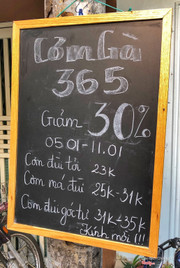 Cơm Gà
365
Giảm 30%
05.01-11.01
Cơm đùi tỏi 23k
Cơm má đùi 25k-31k
Cơm đùi góc tư 31k-35k
Kính mời !!!